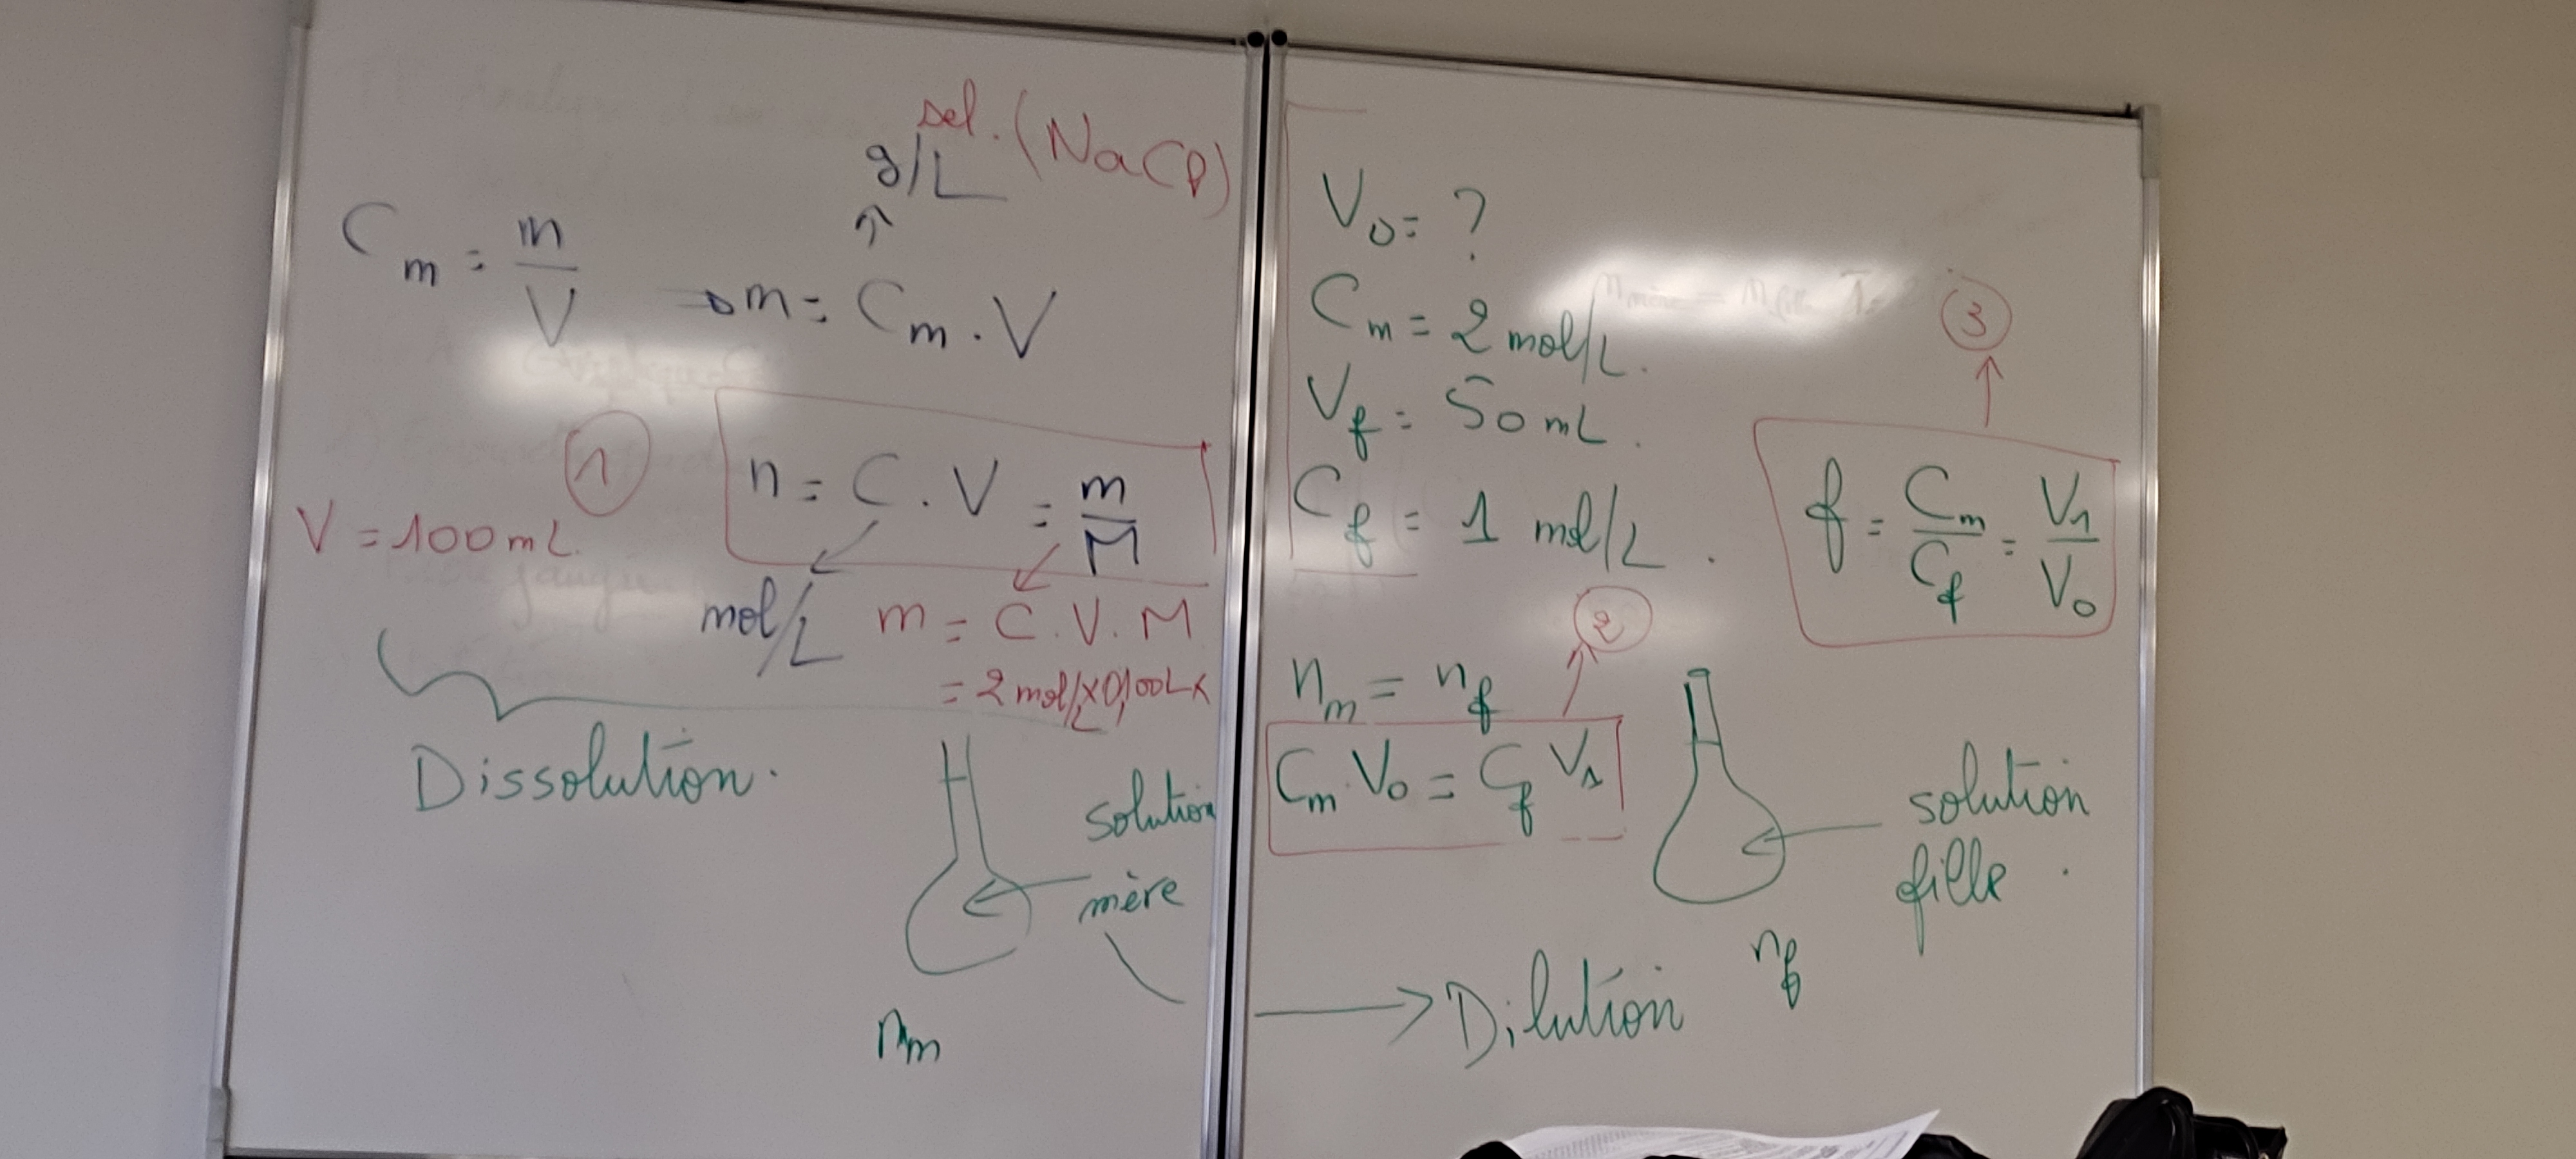 sel. (NaCl)
g/L
↑
Cm = m/V ⇒ m = Cm . V
①
n = C . V = m/M
V = 100 mL
mol/L
m = C . V . M
= 2 mol/L × 0,100L ×
Dissolution.
solution
mère
nm
V0 = ?
Cm = 2 mol/L.
Vf = 50 mL.
Cf = 1 mol/L.
③
f = Cm/Cf = V1/V0
②
nm = nf
Cm . V0 = Cf V1
solution
fille.
nf
→ Dilution